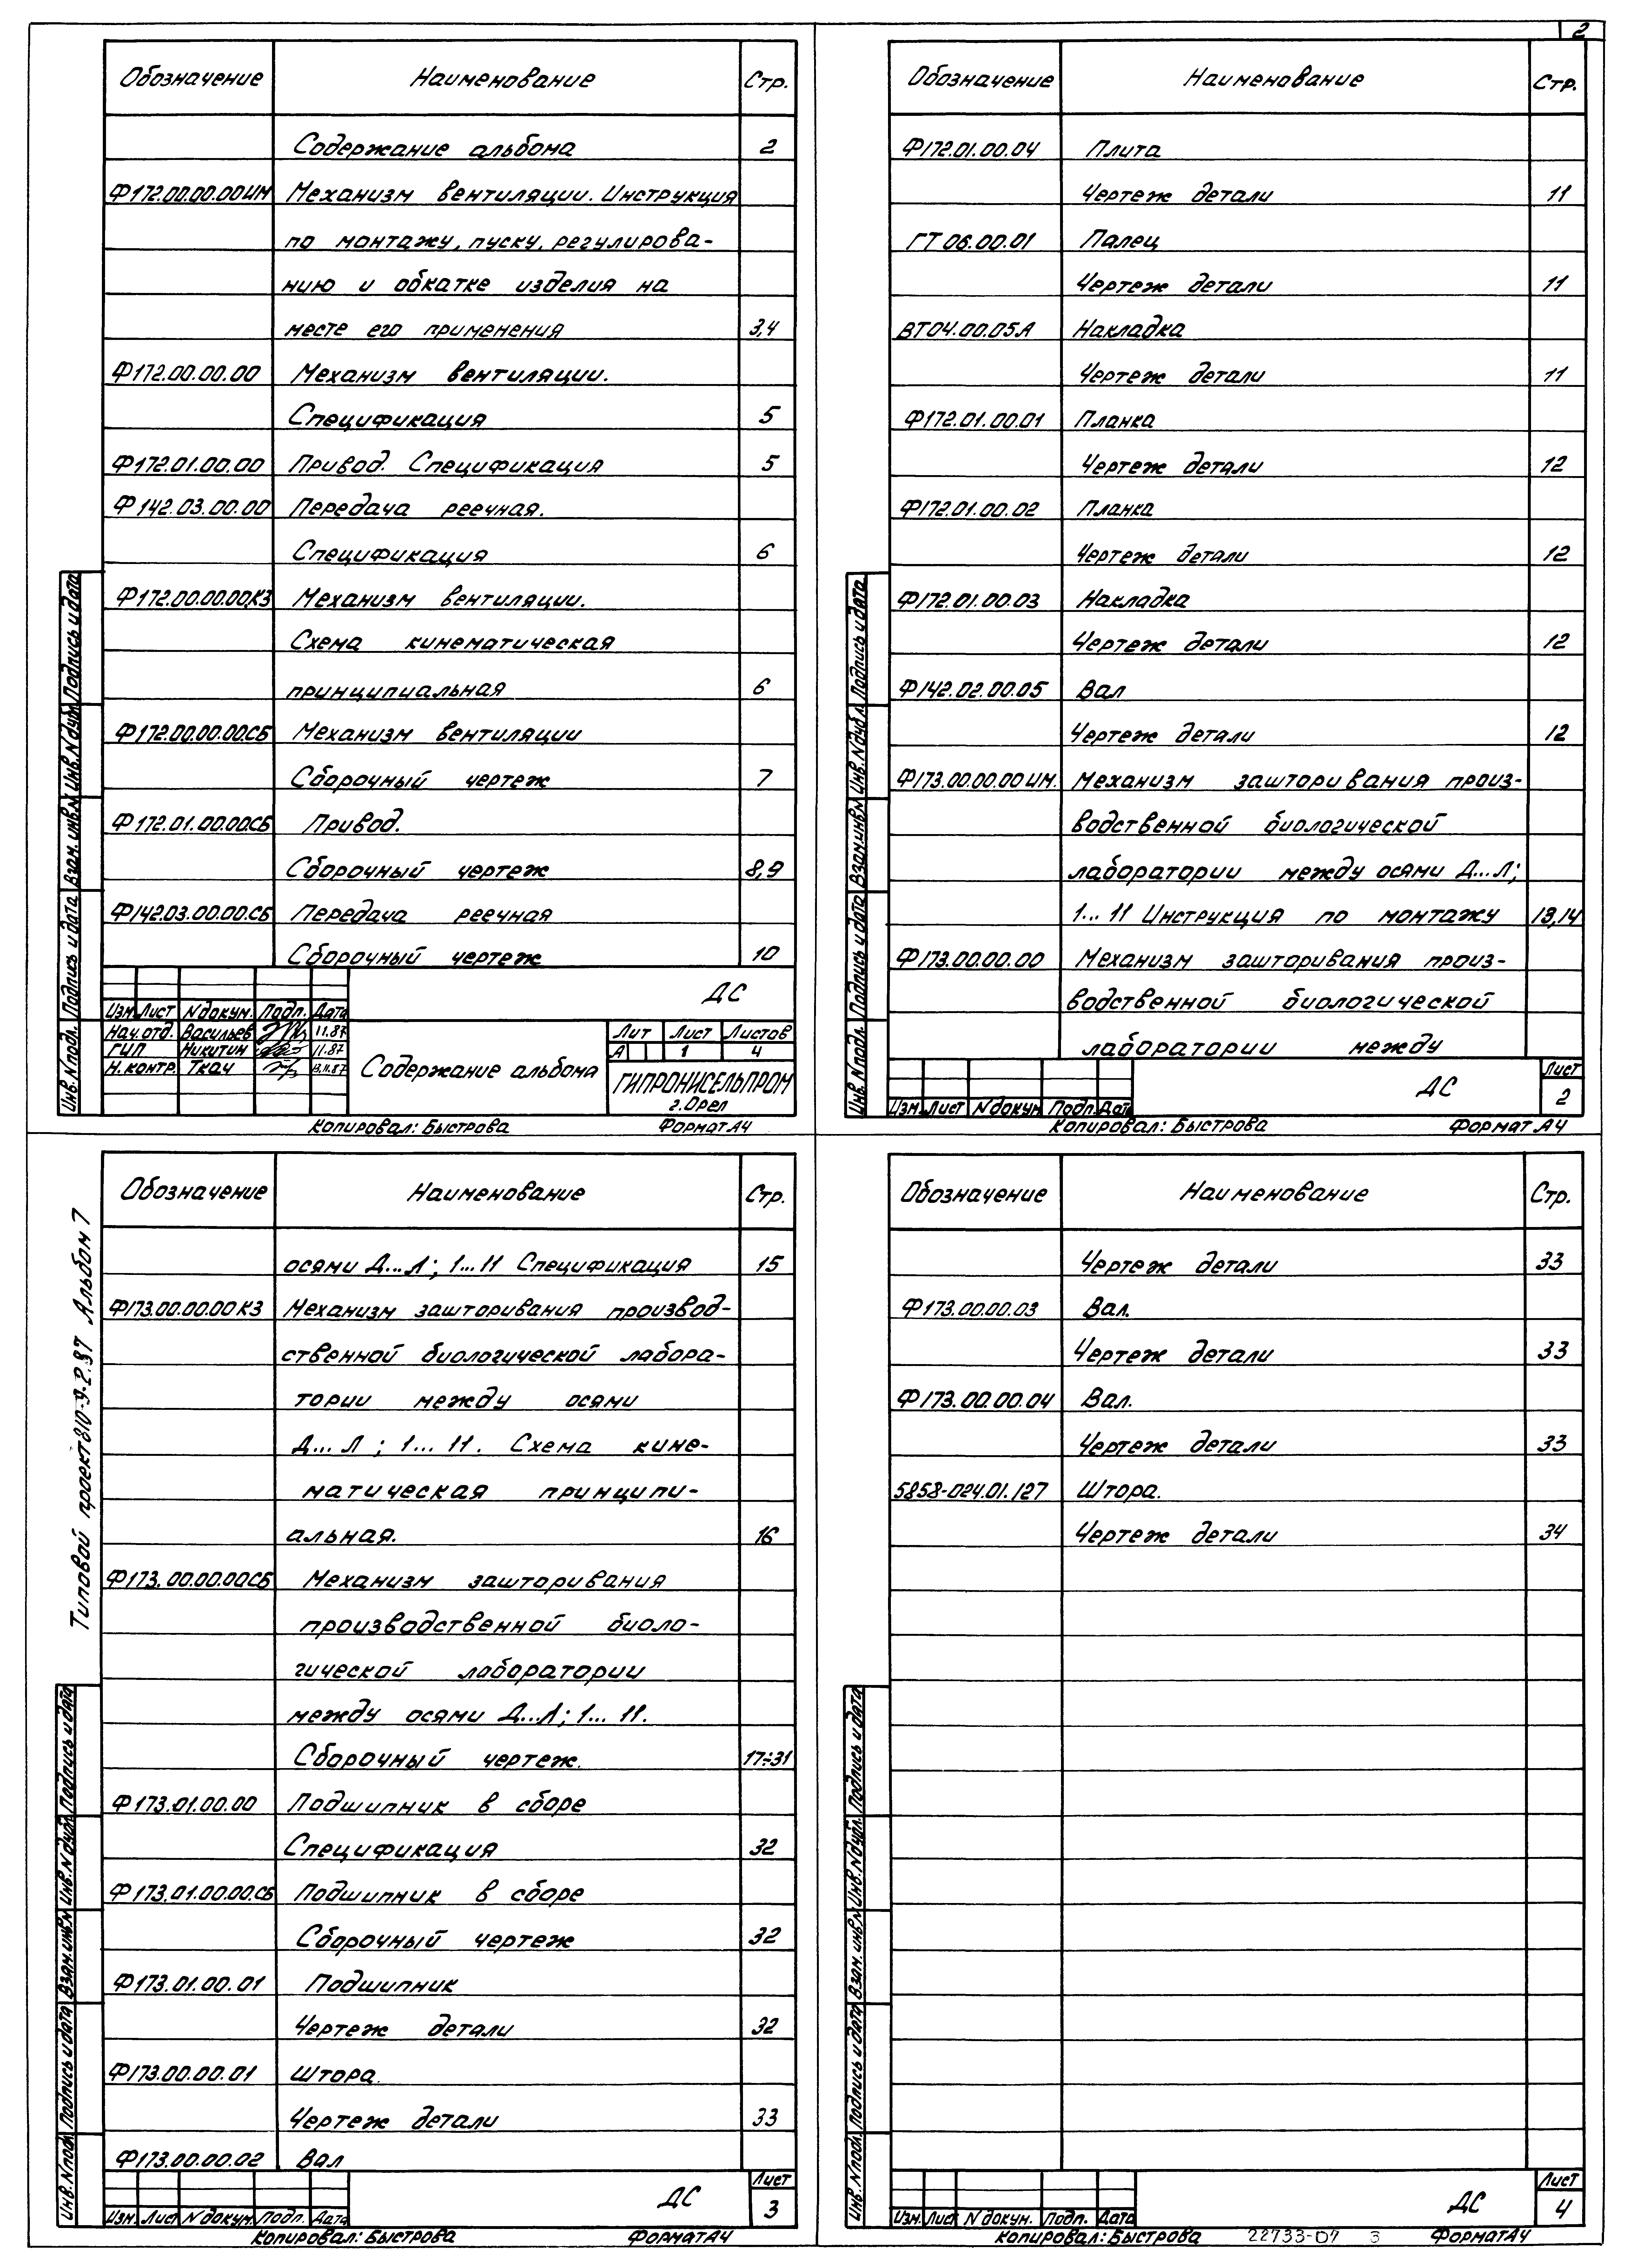 2
Обозначение Наименование Стр.
Содержание альбома 2
Ф172.00.00.00ИМ Механизм вентиляции. Инструкция
по монтажу, пуску, регулирова-
нию и обкатке изделия на
месте его применения 3,4
Ф172.00.00.00 Механизм вентиляции.
Спецификация 5
Ф172.01.00.00 Привод. Спецификация 5
Ф142.03.00.00 Передача реечная.
Спецификация 6
Ф172.00.00.00К3 Механизм вентиляции.
Схема кинематическая
принципиальная 6
Ф172.00.00.00СБ Механизм вентиляции
Сборочный чертеж 7
Ф172.01.00.00СБ Привод.
Сборочный чертеж 8,9
Ф142.03.00.00СБ Передача реечная
Сборочный чертеж 10
ДС
Изм Лист N докум. Подп. Дата
Нач.отд. Васильев 11.87
ГИП Никитин 11.87
Н.контр. Ткач 13.11.87
Содержание альбома
Лит Лист Листов
А 1 4
ГИПРОНИСЕЛЬПРОМ
г.Орел
Инв.N подл. Подпись и дата Взам.инв.N Инв.N дубл. Подпись и дата
Копировал: Быстрова Формат А4
Обозначение Наименование Стр.
Ф172.01.00.04 Плита
Чертеж детали 11
ГТ06.00.01 Палец
Чертеж детали 11
ВТ04.00.05А Накладка
Чертеж детали 11
Ф172.01.00.01 Планка
Чертеж детали 12
Ф172.01.00.02 Планка
Чертеж детали 12
Ф172.01.00.03 Накладка
Чертеж детали 12
Ф142.02.00.05 Вал
Чертеж детали 12
Ф173.00.00.00ИМ. Механизм зашторивания произ-
водственной биологической
лаборатории между осями Д...Л;
1...11 Инструкция по монтажу 13,14
Ф173.00.00.00 Механизм зашторивания произ-
водственной биологической
лаборатории между
ДС
Лист
2
Изм. Лист N докум Подп. Дата
Инв.N подл. Подпись и дата Взам.инв.N Инв.N дубл. Подпись и дата
Копировал: Быстрова Формат А4
Типовой проект 810-9-2.87 Альбом 7
Обозначение Наименование Стр.
осями Д...Л; 1...11 Спецификация 15
Ф173.00.00.00К3 Механизм зашторивания производ-
ственной биологической лабора-
тории между осями
Д...Л; 1...11. Схема кине-
матическая принципи-
альная. 16
Ф173.00.00.00СБ Механизм зашторивания
производственной биоло-
гической лаборатории
между осями Д...Л; 1...11.
Сборочный чертеж. 17÷31
Ф173.01.00.00 Подшипник в сборе
Спецификация 32
Ф173.01.00.00.СБ Подшипник в сборе
Сборочный чертеж 32
Ф173.01.00.01 Подшипник
Чертеж детали 32
Ф173.00.00.01 Штора.
Чертеж детали 33
Ф173.00.00.02 Вал
ДС
Лист
3
Изм. Лист N докум. Подп. Дата
Инв.N подл. Подпись и дата Взам.инв.N Инв.N дубл. Подпись и дата
Копировал: Быстрова Формат А4
Обозначение Наименование Стр.
Чертеж детали 33
Ф173.00.00.03 Вал.
Чертеж детали 33
Ф173.00.00.04 Вал.
Чертеж детали 33
5858-024.01.127 Штора.
Чертеж детали 34
ДС
Лист
4
Изм. Лист N докум. Подп. Дата
Инв.N подл. Подпись и дата Взам.инв.N Инв.N дубл. Подпись и дата
Копировал: Быстрова 22733-07 3 Формат А4